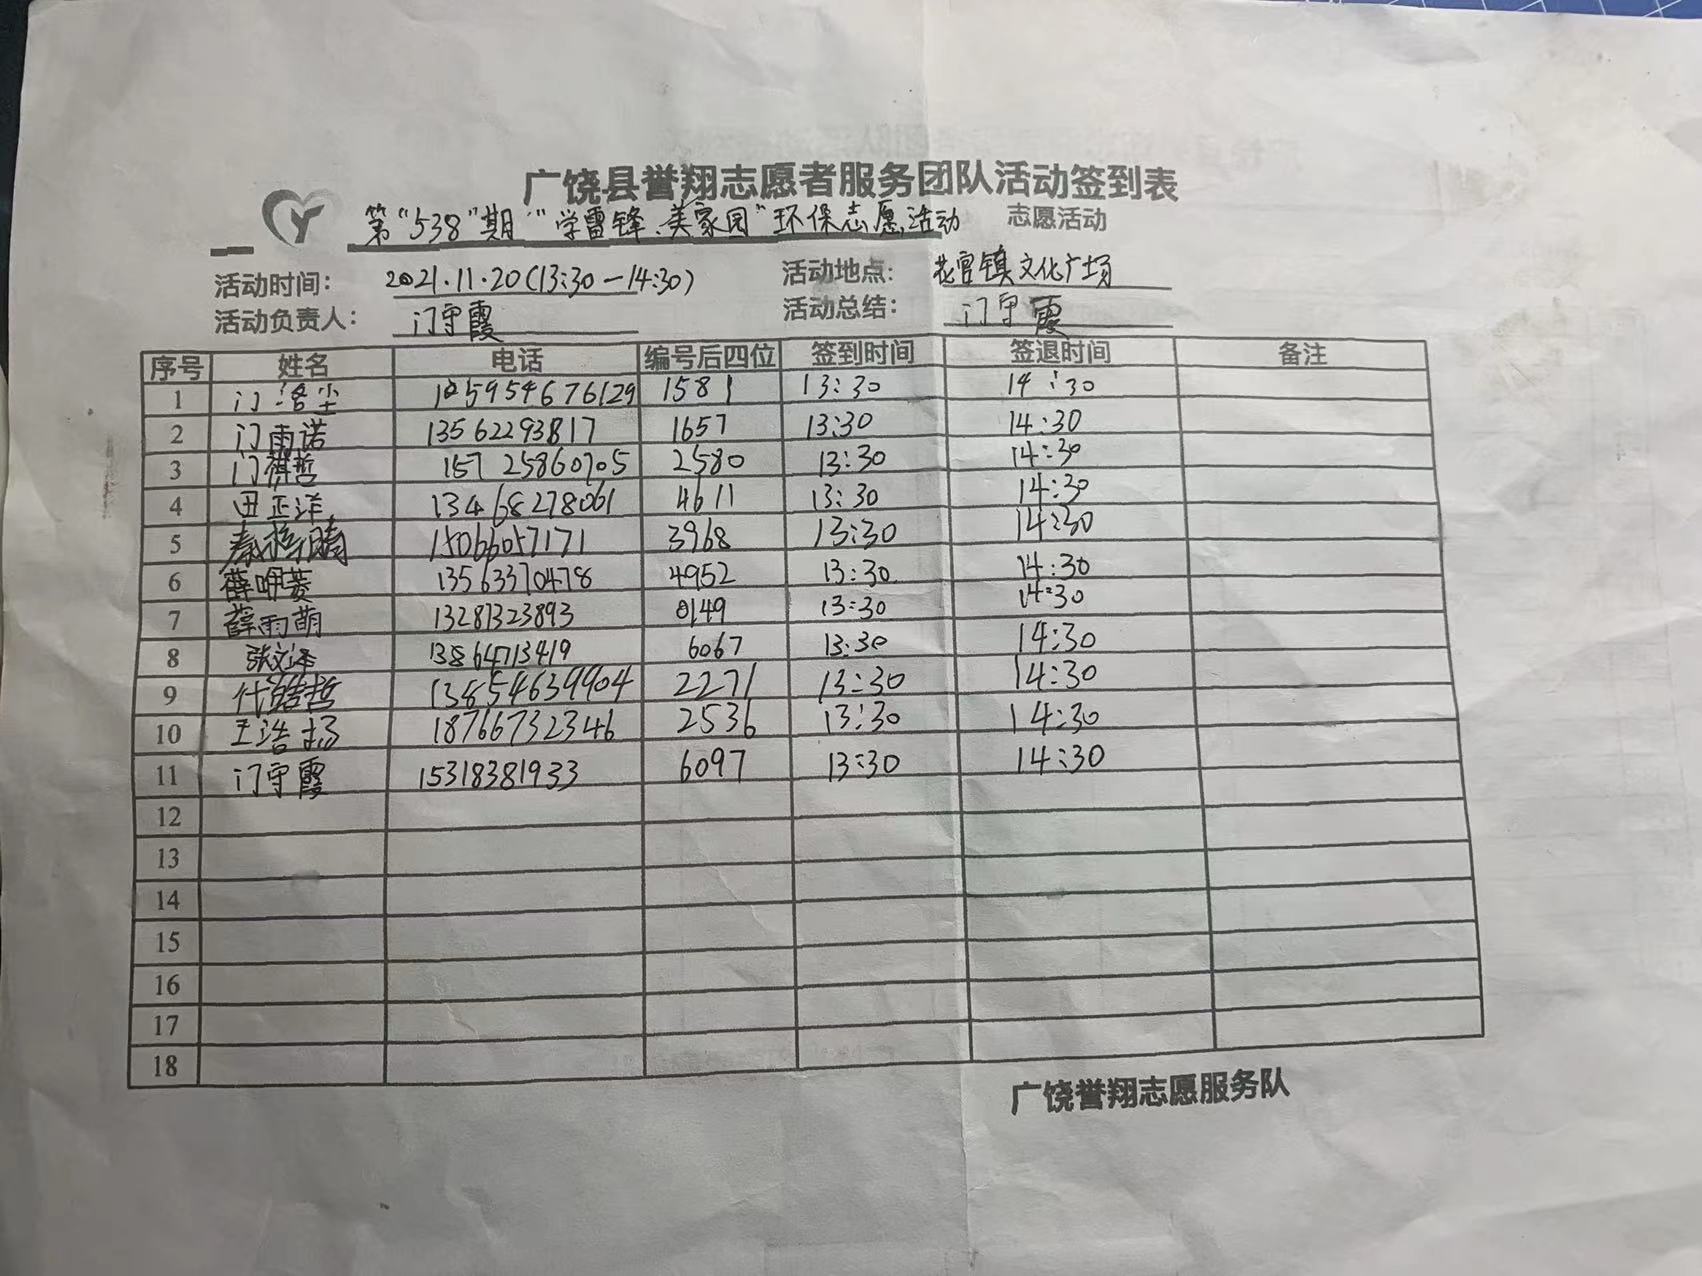 广饶县誉翔志愿者服务团队活动签到表
第"538"期"学雷锋、美家园"环保志愿活动 志愿活动
活动时间: 2021.11.20(13:30-14:30) 活动地点: 花官镇文化广场
活动负责人: 门守霞 活动总结: 门守霞
序号 姓名 电话 编号后四位 签到时间 签退时间 备注
1 门洺尘 15954676129 1581 13:30 14:30
2 门雨诺 13562293817 1657 13:30 14:30
3 门祺哲 15725860705 2580 13:30 14:30
4 田正洋 13468278061 4611 13:30 14:30
5 15066057171 3968 13:30 14:30
6 薛咿菱 13563370478 4952 13:30 14:30
7 薛雨萌 13281323893 0149 13:30 14:30
8 张文泽 13864713419 6067 13:30 14:30
9 代皓哲 13854639904 2271 13:30 14:30
10 王浩扬 18766732346 2536 13:30 14:30
11 门守霞 15318381933 6097 13:30 14:30
12
13
14
15
16
17
18
广饶誉翔志愿服务队